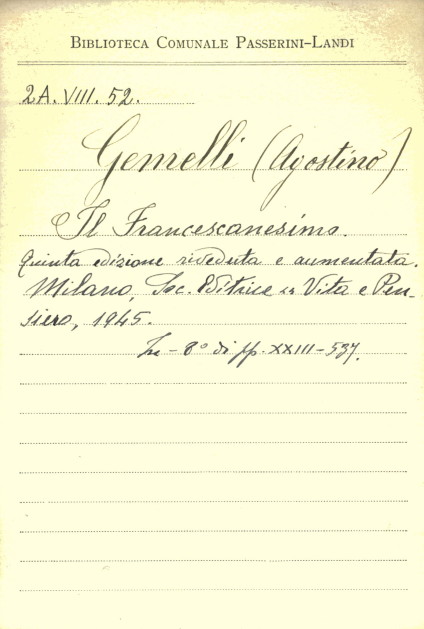 BIBLIOTECA COMUNALE PASSERINI-LANDI
2A. VIII. 52.
Gemelli (Agostino)
Il Francescanesimo.
Quinta edizione riveduta e aumentata.
Milano, Soc. Editrice «Vita e Pen-
siero, 1945.
In-8° di pp. XXIII-537.